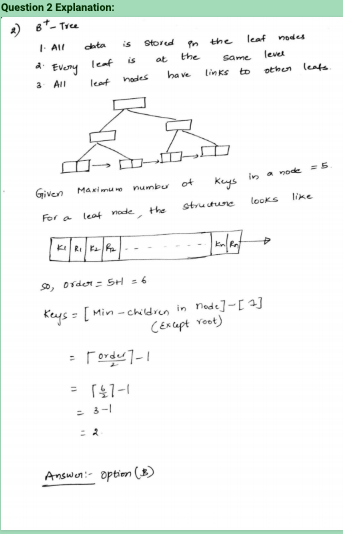 Question 2 Explanation:
2) B+ - Tree
1. All data is stored in the leaf nodes
2. Every leaf is at the same level
3. All leaf nodes have links to other leafs.
Given Maximum number of keys in a node = 5.
For a leaf node, the structure looks like
K1 R1 K2 R2 - - - - - - - Kn Rn
so, order = 5+1 = 6
Keys = [Min - children in node] - [1]
(Except root)
= ⌈order/2⌉ - 1
= ⌈6/2⌉ - 1
= 3 - 1
= 2
Answer:- option (B)